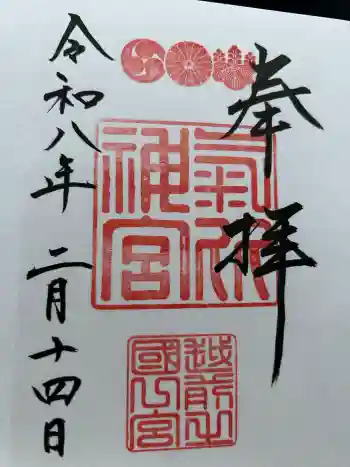 奉拝
氣比神宮
越前之國一宮
令和八年二月十四日